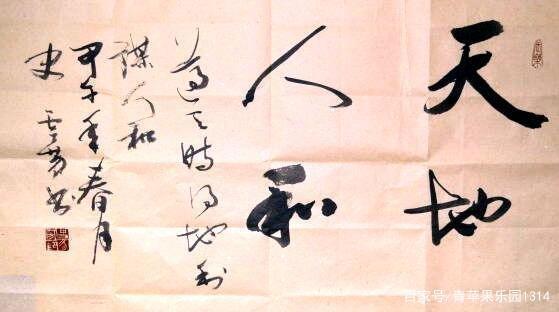 天地
人和
遵天时得地利
谋人和
甲午年春月
史
书
百家号/青苹果乐园1314